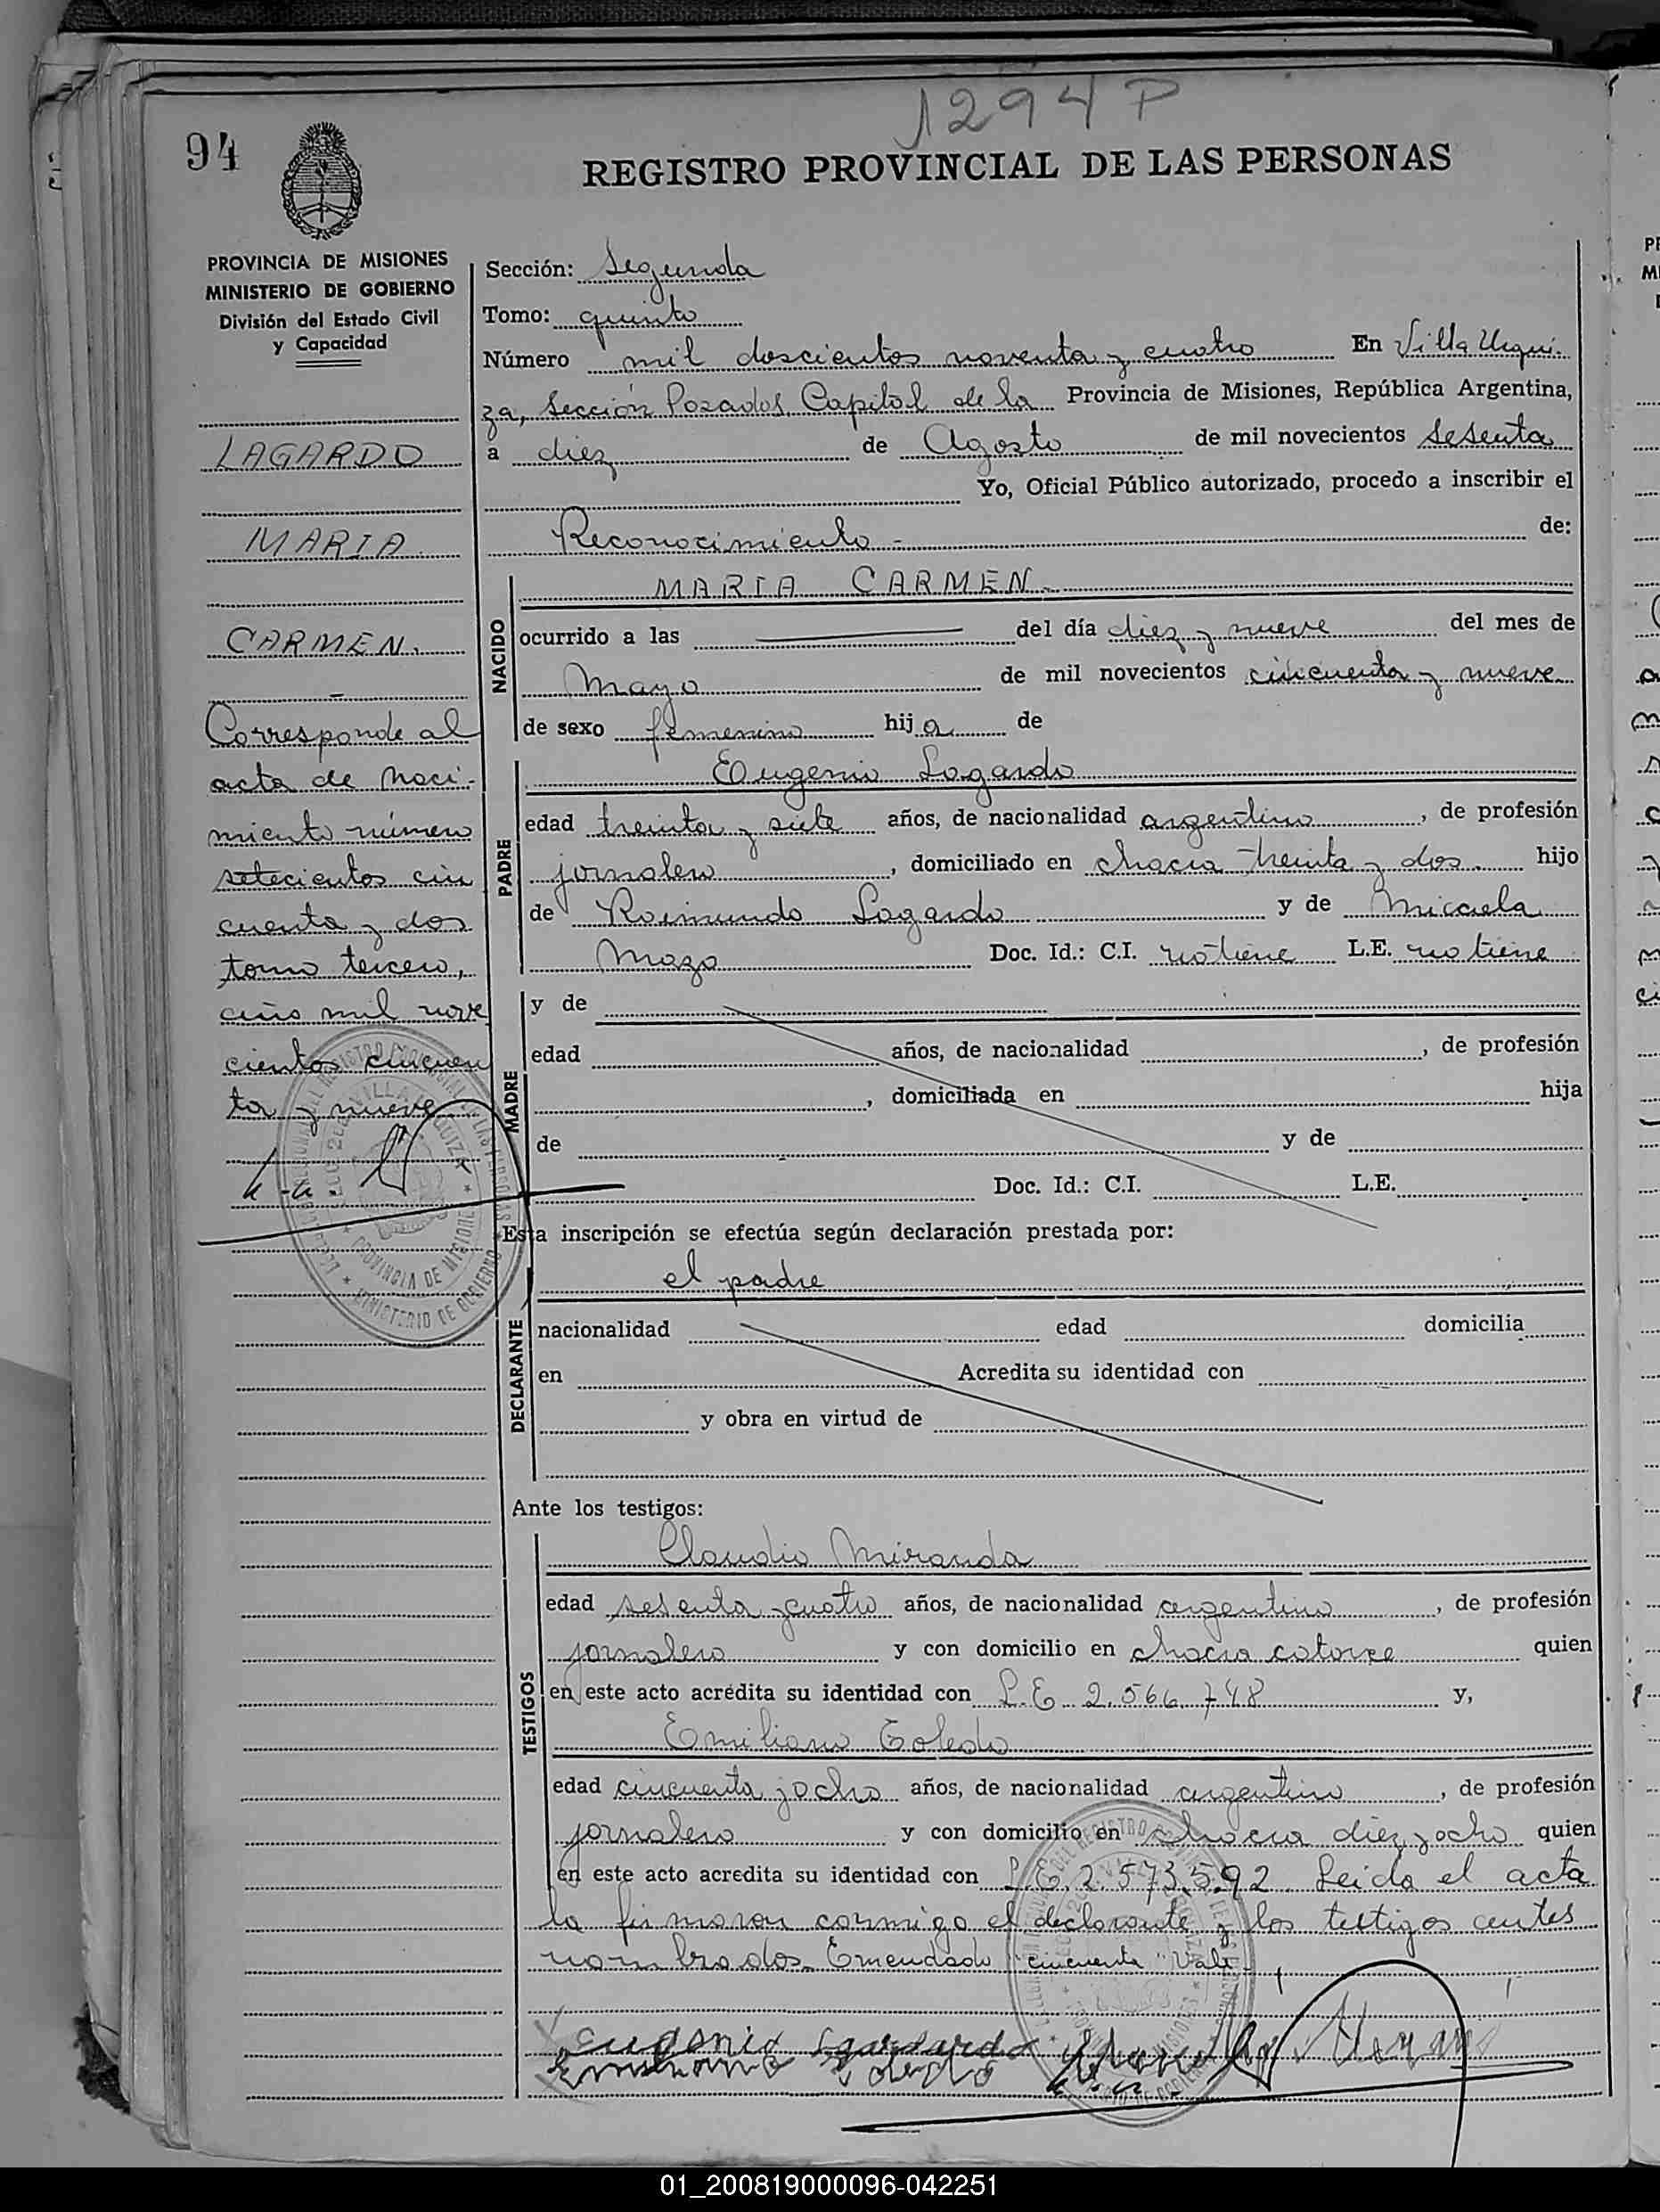 1294 P
94
REGISTRO PROVINCIAL DE LAS PERSONAS
PROVINCIA DE MISIONES
MINISTERIO DE GOBIERNO
División del Estado Civil
y Capacidad
LAGARDO
MARIA
CARMEN.
Corresponde al
acta de naci-
miento número
setecientos cin
cuenta y dos
tomo tercero,
año mil nove
cientos cincuen
ta y nueve
Sección: Segunda
Tomo: quinto
Número mil doscientos noventa y cuatro En Villa Urqui-
za, Sección Posadas, Capital de la Provincia de Misiones, República Argentina,
a diez de Agosto de mil novecientos sesenta
Yo, Oficial Público autorizado, procedo a inscribir el
Reconocimiento - de:
NACIDO
MARIA CARMEN.
ocurrido a las del día diez y nueve del mes de
Mayo de mil novecientos cincuenta y nueve
de sexo femenino hija de
PADRE
Eugenio Lagardo
edad treinta y siete años, de nacionalidad argentino, de profesión
jornalero, domiciliado en chacra treinta y dos hijo
de Raimundo Lagardo y de Micaela
Mazo Doc. Id.: C.I. no tiene L.E. no tiene
MADRE
y de
edad años, de nacionalidad , de profesión
, domiciliada en hija
de y de
Doc. Id.: C.I. L.E.
Esta inscripción se efectúa según declaración prestada por:
DECLARANTE
el padre
nacionalidad edad domicilia
en Acredita su identidad con
y obra en virtud de
Ante los testigos:
TESTIGOS
Claudio Miranda
edad sesenta y cuatro años, de nacionalidad argentino, de profesión
jornalero y con domicilio en chacra catorce quien
en este acto acredita su identidad con L.E. 2.566.748 y,
Emiliano Toledo
edad cincuenta y ocho años, de nacionalidad argentino, de profesión
jornalero y con domicilio en chacra diez y ocho quien
en este acto acredita su identidad con L.E. 2.573.592. Leida el acta
la firmaron conmigo el declarante y los testigos antes
nombrados. Emendado "cincuenta" Vale.
Eugenio Lagardo
Emiliano Toledo
01_200819000096-042251